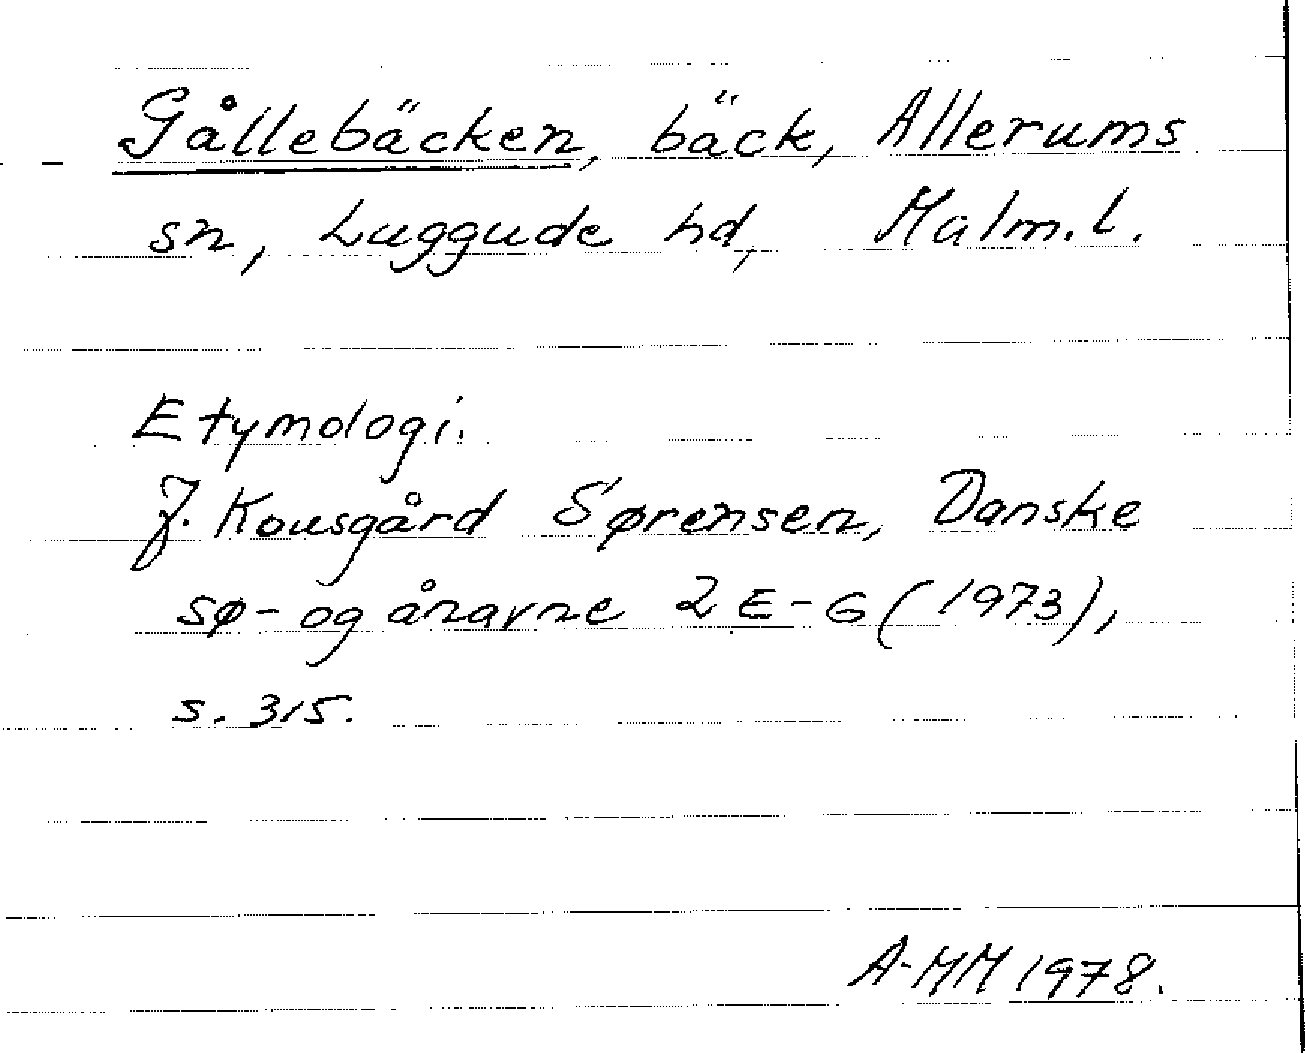 Gållebäcken, bäck, Allerums
sn, Luggude hd, Malm.l.
Etymologi.
J. Kousgård Sørensen, Danske
sø- og ånavne 2 E-G (1973),
s. 315.
A-MM 1978.